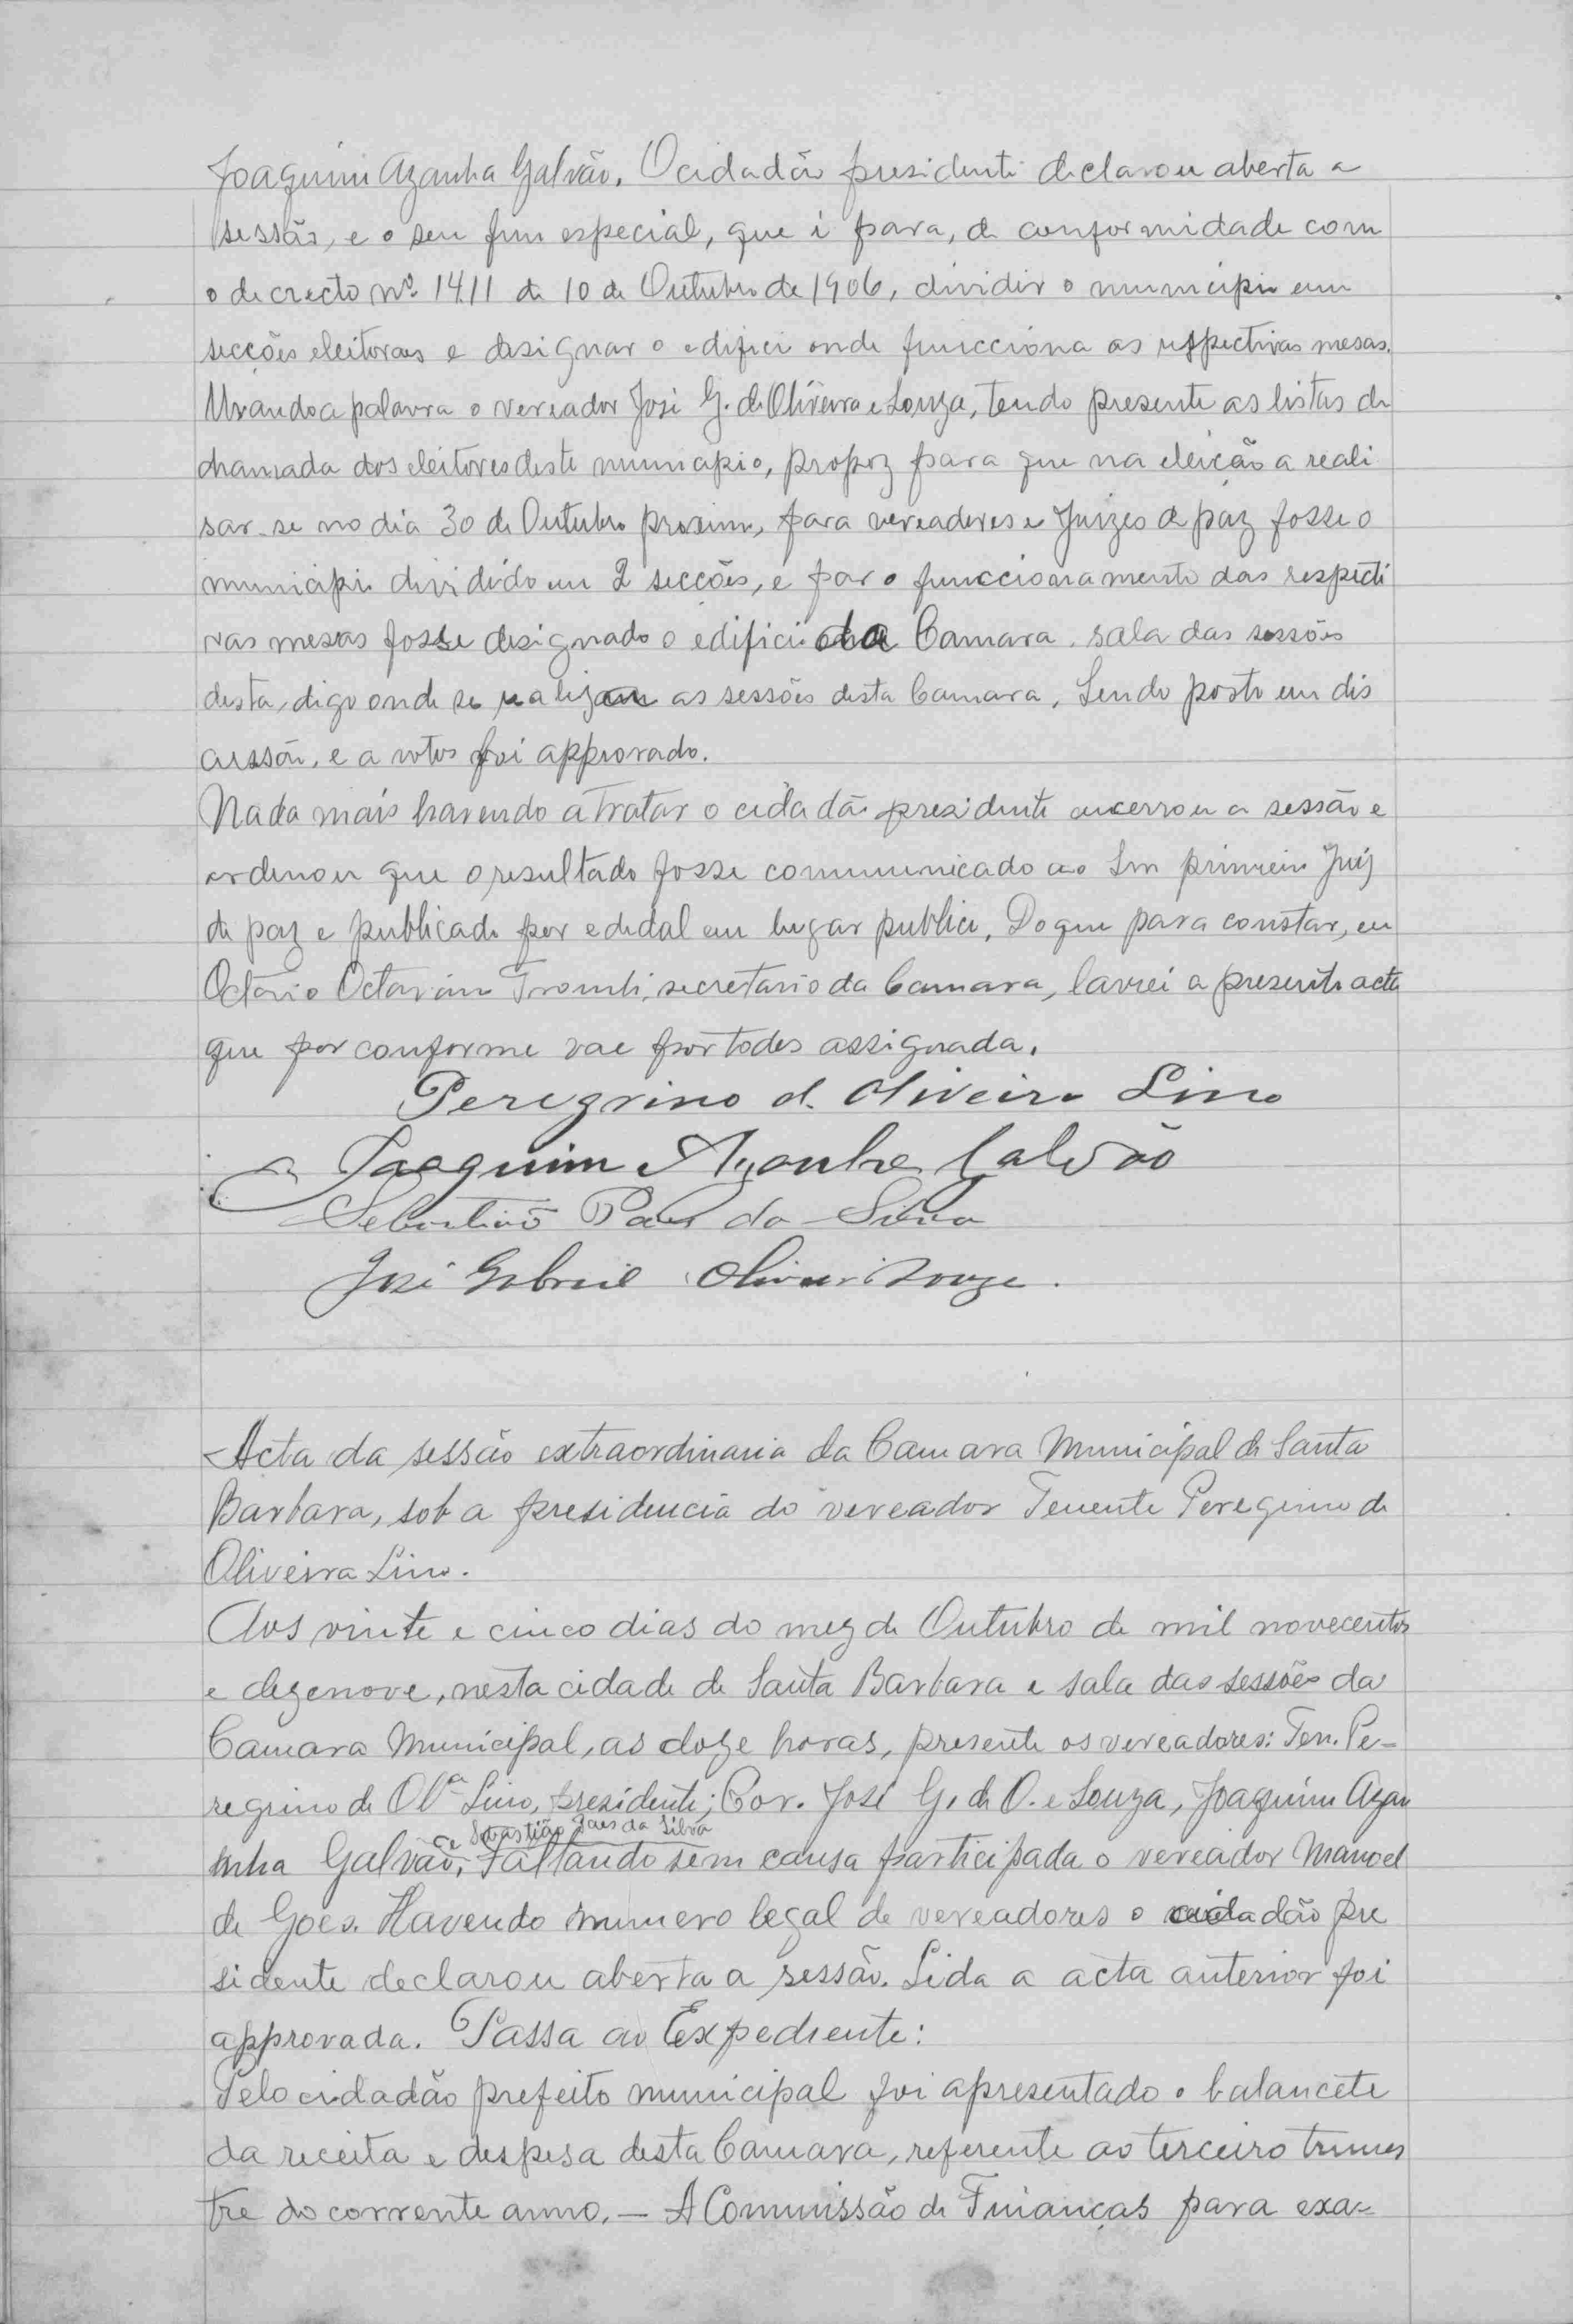 Joaquim Azanha Galvão. O cidadão presidente declarou aberta a
sessão, e o seu fim especial, que é para, de conformidade com
o decrecto nº 1411 de 10 de Outubro de 1906, dividir o municipio em
secções eleitoraes e designar o edificio onde funcciona as respectivas mesas.
Uzando a palavra o vereador José G. de Oliveira e Souza, tendo presente as listas de
chamada dos eleitores deste municipio, propoz para que na eleição a reali
sar-se no dia 30 de Outubro proximo, para vereadores e Juizes de paz fosse o
municipio dividido em 2 secções, e par o funccionamento das respecti
vas mesas fosse designado o edificio da Camara, sala das sessões
desta, digo onde se realizam as sessões desta Camara. Sendo posto em dis
cussão, e a votos foi approvado.
Nada mais havendo a tratar o cidadão presidente encerrou a sessão e
ordenou que o resultado fosse communicado ao Snr primeiro Juiz
de paz e publicado por ededal em lugar publico. Do que para constar, eu
Octavio Octaviano secretario da Camara, lavrei a presente acta
que por conforme vae por todos assignada.
Peregrino d. Oliveira Lino
Joaquim Azanha Galvão
Sebastião Paes da Silva
José Gabriel Oliveira Souza.
Acta da sessão extraordinaria da Camara Municipal de Santa
Barbara, sob a presidencia do vereador Tenente Peregrino de
Oliveira Lino.
Aos vinte e cinco dias do mez de Outubro de mil novecentos
e dezenove, nesta cidade de Santa Barbara e sala das sessões da
Camara Municipal, as doze horas, presente os vereadores: Ten. Pe-
regrino de Olª Lino, presidente; Cor. José G. de O. e Souza, Joaquim Azan
nha Galvão, e Sebastião Paes da Silva Faltando sem causa participada o vereador Manoel
de Goes. Havendo numero legal de vereadores o cidadão pre
sidente declarou aberta a sessão. Lida a acta anterior foi
approvada. Passa ao Expediente:
Pelo cidadão prefeito municipal foi apresentado o balancete
da receita e despesa desta Camara, referente ao terceiro trimes
tre do corrente anno. — A Commissão de Finanças para exa-